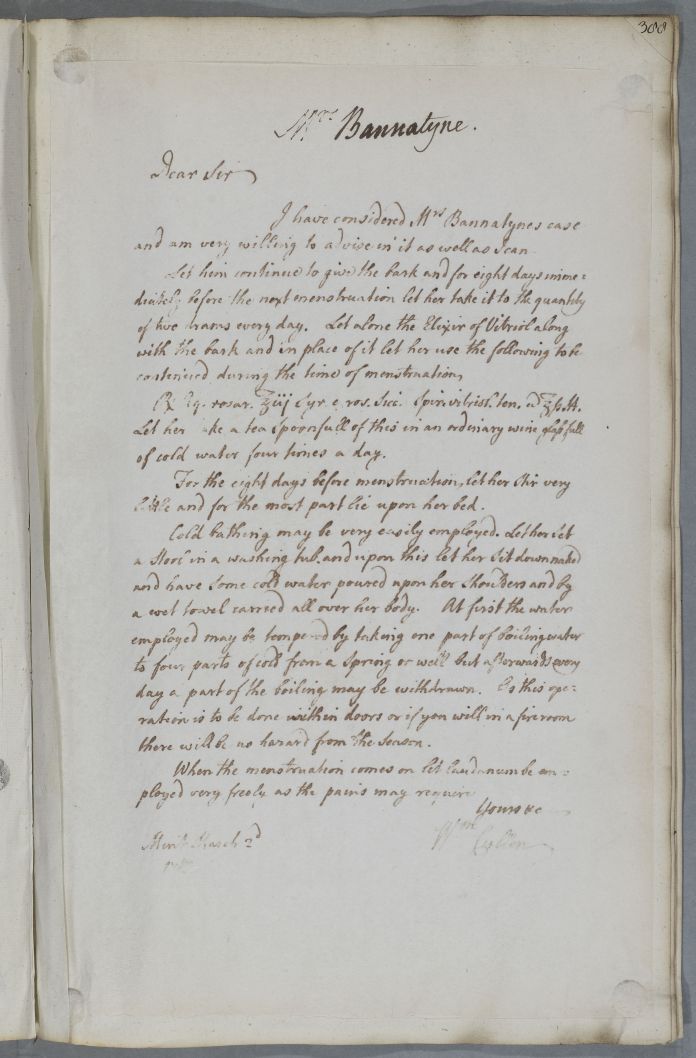 388
Mrs Bannatyne.
Dear Sir
I have considered Mrs Bannatynes case
and am very willing to advise in it as well as I can
Let him continue to give the bark and for eight days imme=
diately before the next menstruation let her take it to the quantity
of two drams every day. Let alone the Elixir of Vitriol along
with the bark and in place of it let her use the following to be
continued during the time of menstruation,
℞ rosar. ℥iij Syr e ros. Sicc. Spir. vitriol. ten. ℥ſs. M.
Let her take a tea Spoonfull of this in an ordinary wine glass full
of cold water four times a day.
For the eight days before menstruation, let her Stir very
little and for the most part lie upon her bed.
Cold bathing may be very easily employed. Let her Set
a Stool in a washing tub. and upon this let her Sit down naked
and have Some cold water poured upon her Shoulders and by
a wet towel carried all over her body. At first the water
employed may be tempered by taking one part of boiling water
to four parts of cold from a Spring or well but afterwards every
day a part of the boiling may be withdrawn. As this ope=
ration is to be done within doors or if you will in a fire room
there will be no hazard from the Season.
When the menstruation comes on let Laudanum be em=
ployed very freely as the pains may require
Yours &c
Wm
Cullen
Mint March 2d